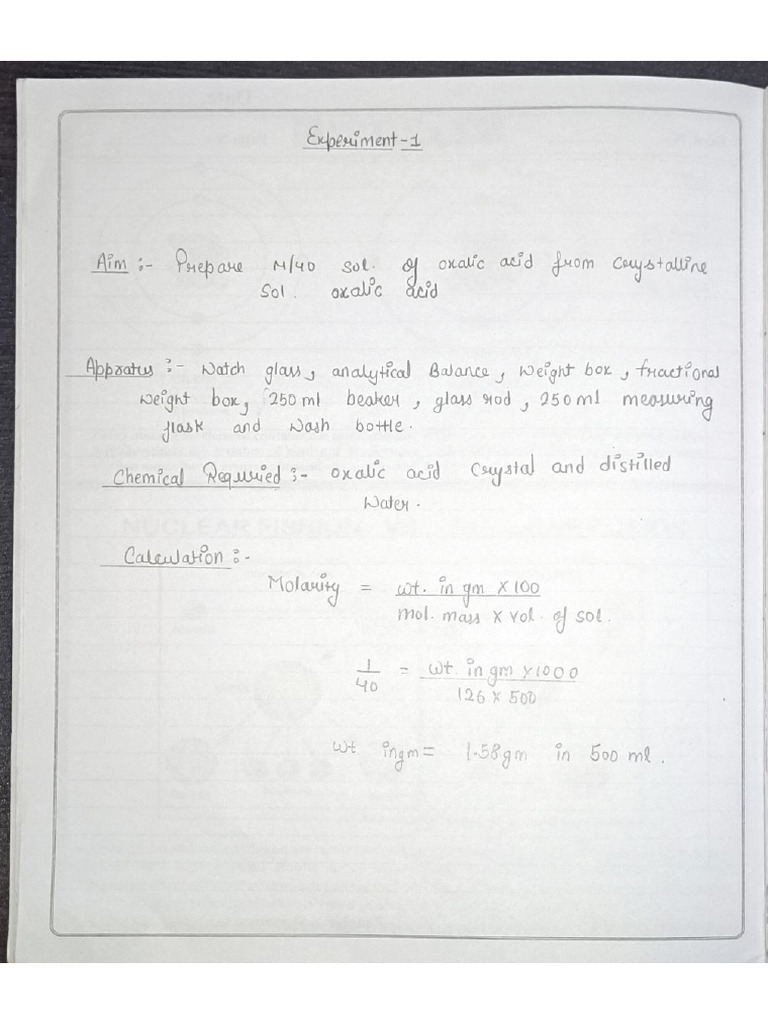 Experiment-1
Aim :- Prepare M/40 sol. of oxalic acid from Crystalline
Sol. oxalic acid
Appratus :- Watch glass, analytical Balance, Weight box, fractional
Weight box, 250 ml beaker, glass rod, 250 ml measuring
flask and Wash bottle.
Chemical Requried :- oxalic acid Crystal and distilled
Water.
Calculation :-
Molarity = wt. in gm X 100
mol. mass X Vol. of sol.
1/40 = Wt. in gm X 1000
126 X 500
Wt in gm = 1.58 gm in 500 ml.